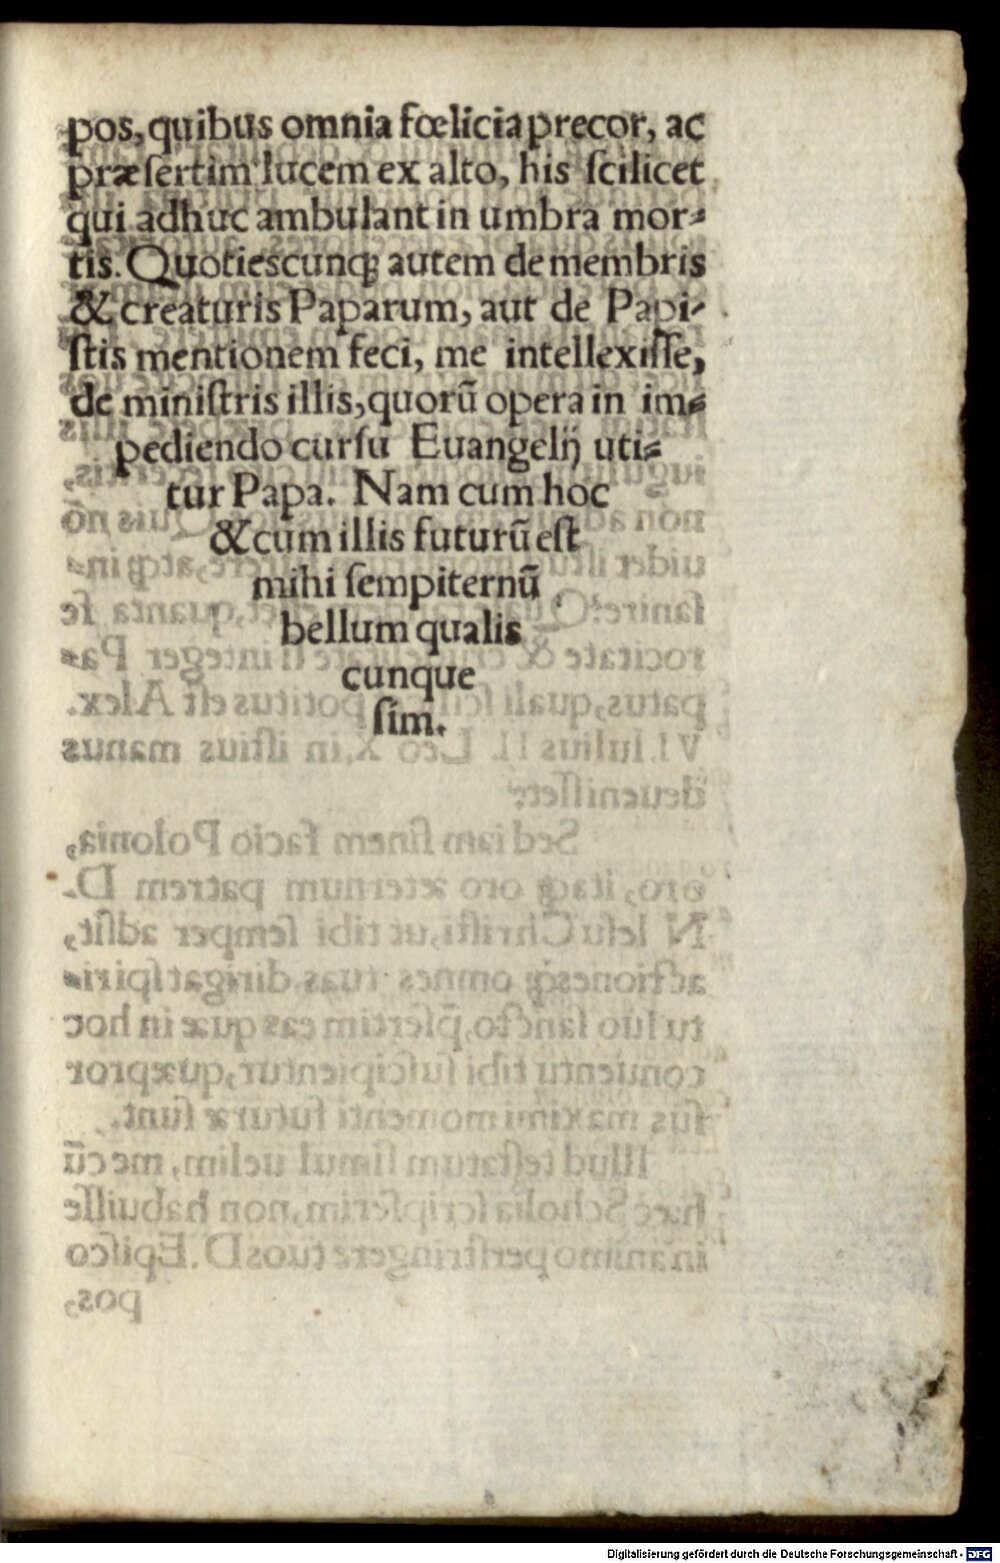 pos, quibus omnia fœlicia precor, ac
præſertim lucem ex alto, his ſcilicet
qui adhuc ambulant in umbra mor⸗
tis. Quotieſcunqꝫ autem de membris
& creaturis Paparum, aut de Papi⸗
ſtis mentionem feci, me intellexiſſe,
de miniſtris illis, quorũ opera in im⸗
pediendo curſu Euangelij uti⸗
tur Papa. Nam cum hoc
& cum illis futurũ eſt
mihi ſempiternũ
bellum qualis
cunque
ſim.
Digitalisierung gefördert durch die Deutsche Forschungsgemeinschaft - DFG